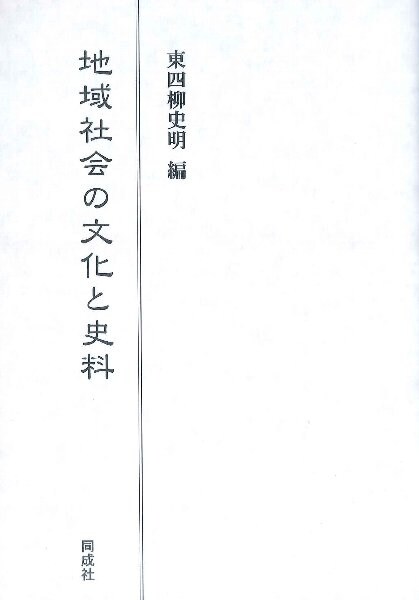 東四柳史明 編
地域社会の文化と史料
同成社